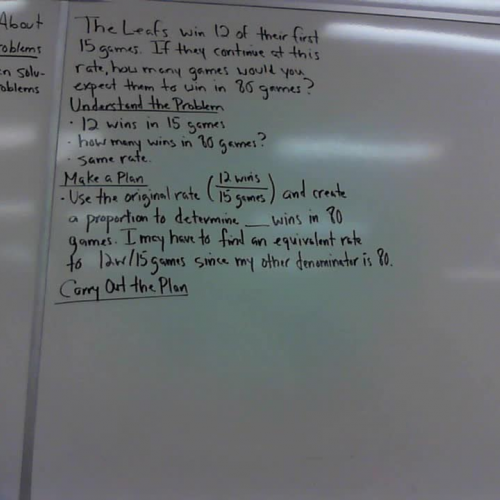 About
roblems
n solu-
oblems
The Leafs win 12 of their first
15 games. If they continue at this
rate, how many games would you
expect them to win in 80 games?
Understand the Problem
· 12 wins in 15 games
· how many wins in 80 games?
· same rate.
Make a Plan
· Use the original rate (12 wins / 15 games) and create
a proportion to determine ___ wins in 80
games. I may have to find an equivalent rate
to 12w/15games since my other denominator is 80.
Carry Out the Plan